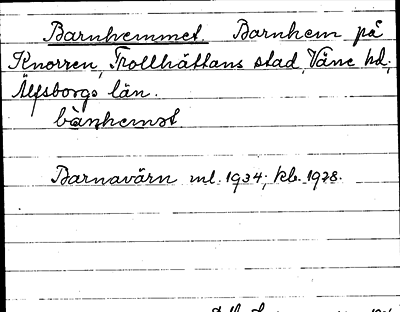 Barnhemmet Barnhem på
Knorren, Trollhättans stad, Väne hd,
Älfsborgs län.
bà̀ṇhemət
Barnavärn ml. 1934; kb. 1928.